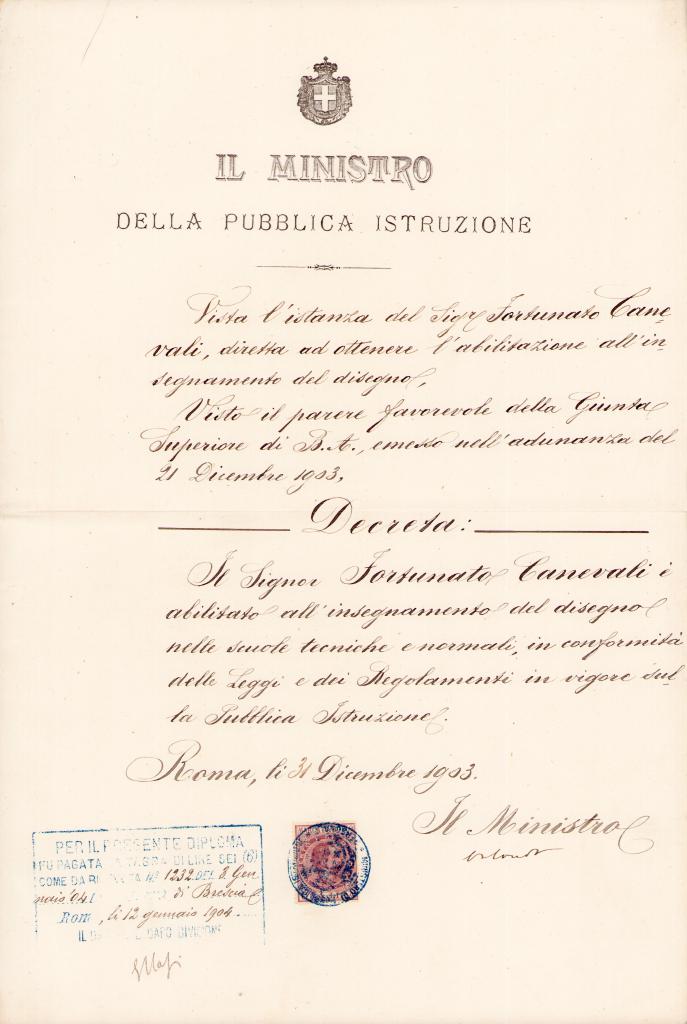 IL MINISTRO
DELLA PUBBLICA ISTRUZIONE
Vista l'istanza del Sigr Fortunato Cane-
vali, diretta ad ottenere l'abilitazione all'in-
segnamento del disegno,
Visto il parere favorevole della Giunta
Superiore di B. A., emesso nell'adunanza del
21 Dicembre 1903,
Decreta:
Il Signor Fortunato Canevali è
abilitato all'insegnamento del disegno
nelle scuole tecniche e normali, in conformità
delle Leggi e dei Regolamenti in vigore sul-
la Pubblica Istruzione.
Roma, li 31 Dicembre 1903.
Il Ministro
Orlando
PER IL PRESENTE DIPLOMA
FU PAGATA LA TASSA DI LIRE SEI (6)
COME DA No 1232 DEL 8 Gen
naio 04 di Brescia
Roma, li 12 gennaio 1904
IL CAPO DIVISIONE